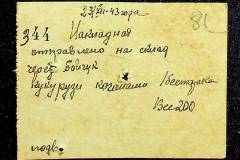 23/XII-43 года
81
344 Накладная
отправлено на склад
через Бойчук
кукурузи качанами 1 бестарка
Вес 200
подв.